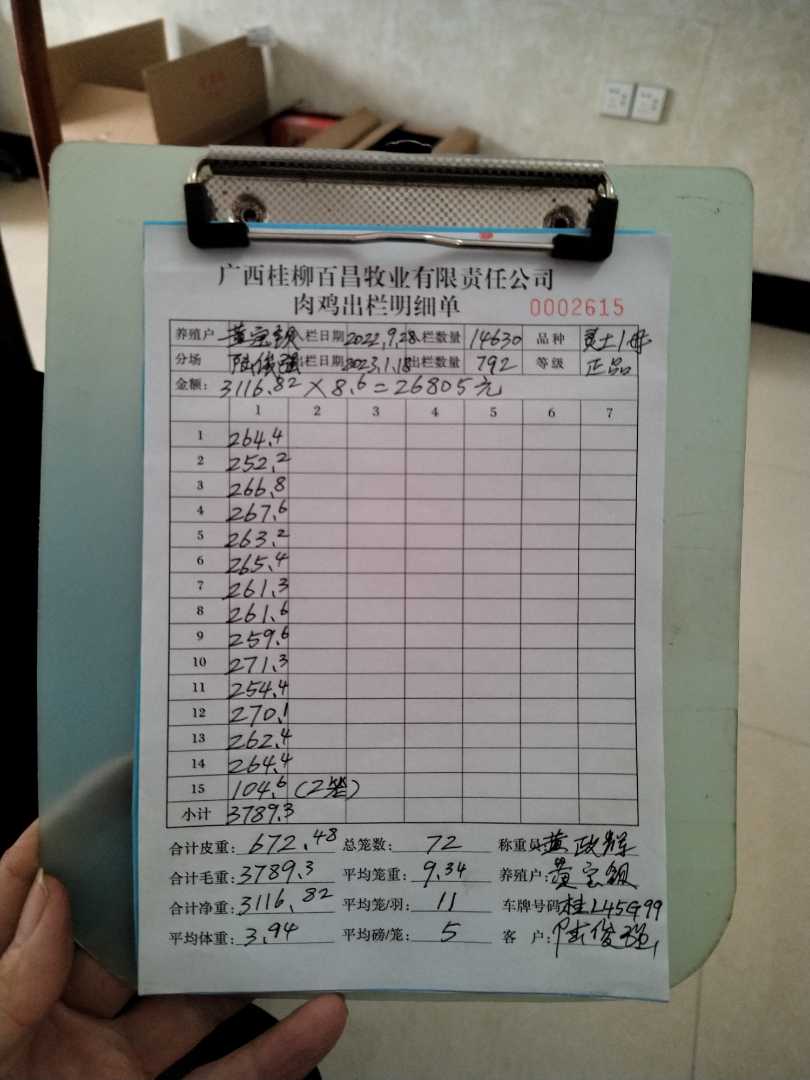 广西桂柳百昌牧业有限责任公司
肉鸡出栏明细单 0002615
养殖户 黄宝钡 入栏日期 2022.9.28 入栏数量 14630 品种 灵土1母
分场 陆俊强 出栏日期 2023.1.18 出栏数量 792 等级 正品
金额: 3116.82×8.6=26805元
1 2 3 4 5 6 7
1 264.4
2 252.2
3 266.8
4 267.6
5 263.2
6 265.4
7 261.3
8 261.6
9 259.6
10 271.3
11 254.4
12 270.1
13 262.4
14 264.4
15 104.6 (2笼)
小计 3789.3
合计皮重: 672.48 总笼数: 72 称重员: 黄政辉
合计毛重: 3789.3 平均笼重: 9.34 养殖户: 黄宝钡
合计净重: 3116.82 平均笼/羽: 11 车牌号码: 桂L45G99
平均体重: 3.94 平均磅/笼: 5 客户: 陆俊强